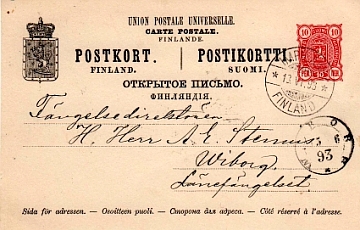 UNION POSTALE UNIVERSELLE.
CARTE POSTALE.
FINLANDE.
POSTKORT. POSTIKORTTI
FINLAND. SUOMI.
ОТКРЫТОЕ ПИСЬМО.
ФИНЛЯНДІЯ.
10 10
FINLAND
93
Fängelsedirektören
H. Herr A. E. Stenius
Wiborg.
Länefängelset
Sida för adressen. — Osoitteen puoli. — Сторона для адреса. — Côté réservé à l'adresse.